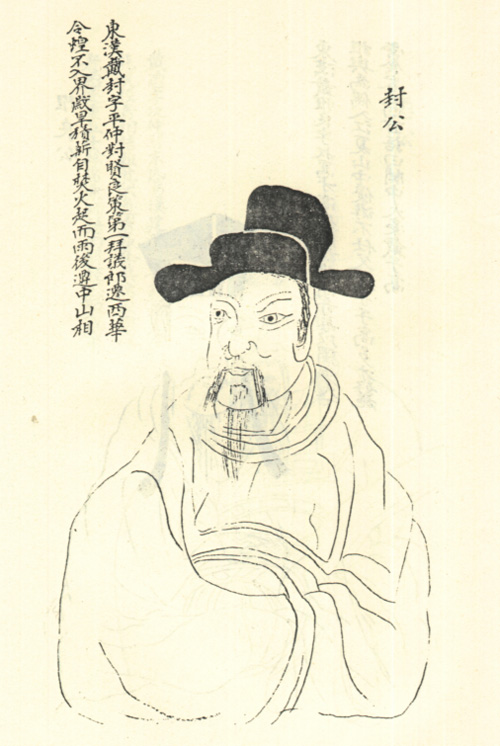 封公
東漢戴封字平仲對賢良策第一拜議郎遷西華
令煌不入界歲旱積新自焚火起而雨後遷中山相